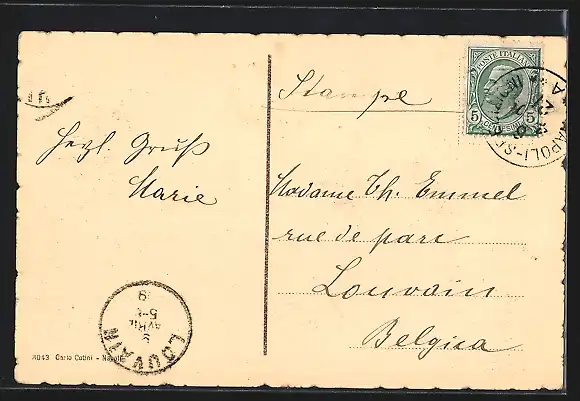 Stampe
POSTE ITALIANE
5 5
CENTESIMI
NAPOLI
Herzl. Gruß
Marie
Madame Th. Emmel
rue de parc
Louvain
Belgica
LOUVAIN
5
AVRIL
5-
9
3043 Carlo Cotini - Napoli